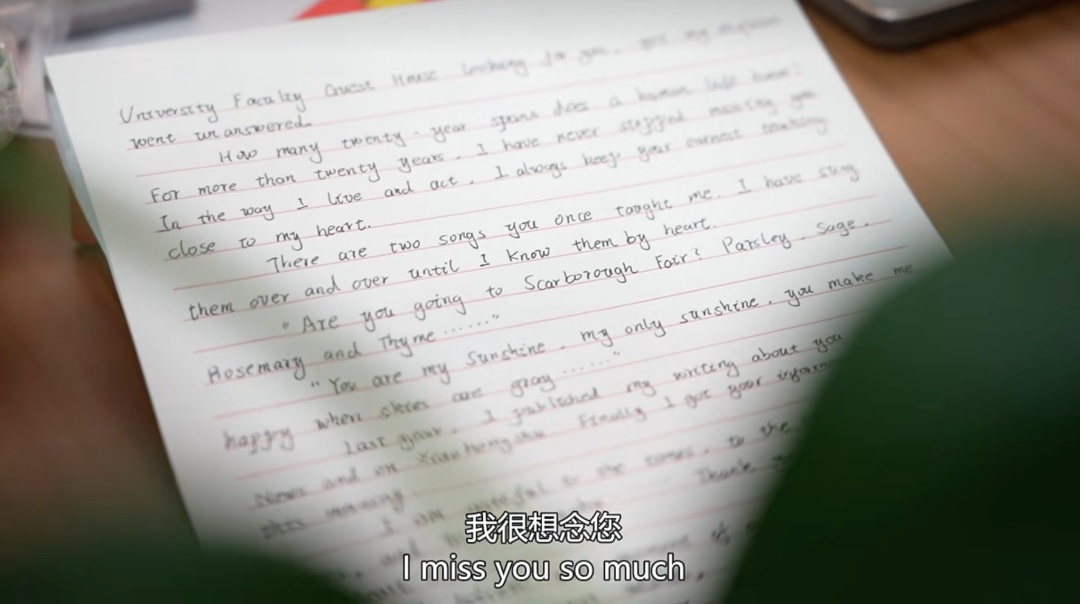 University Faculty Guest House looking for you, yet my
went unanswered.
How many twenty-year spans does a human life have?
For more than twenty years, I have never stopped missing you
In the way I live and act, I always keep your earnest teaching
close to my heart.
There are two songs you once taught me. I have sung
them over and over until I know them by heart.
"Are you going to Scarborough Fair? Parsley, Sage,
Rosemary and Thyme ......"
"You are my Sunshine, my only sunshine, you make me
happy when skies are gray ......"
Last year, I published my writing about you
News and on Xiaohongshu Finally I got your
this morning.
I am to the to the
Thank
我很想念您
I miss you so much